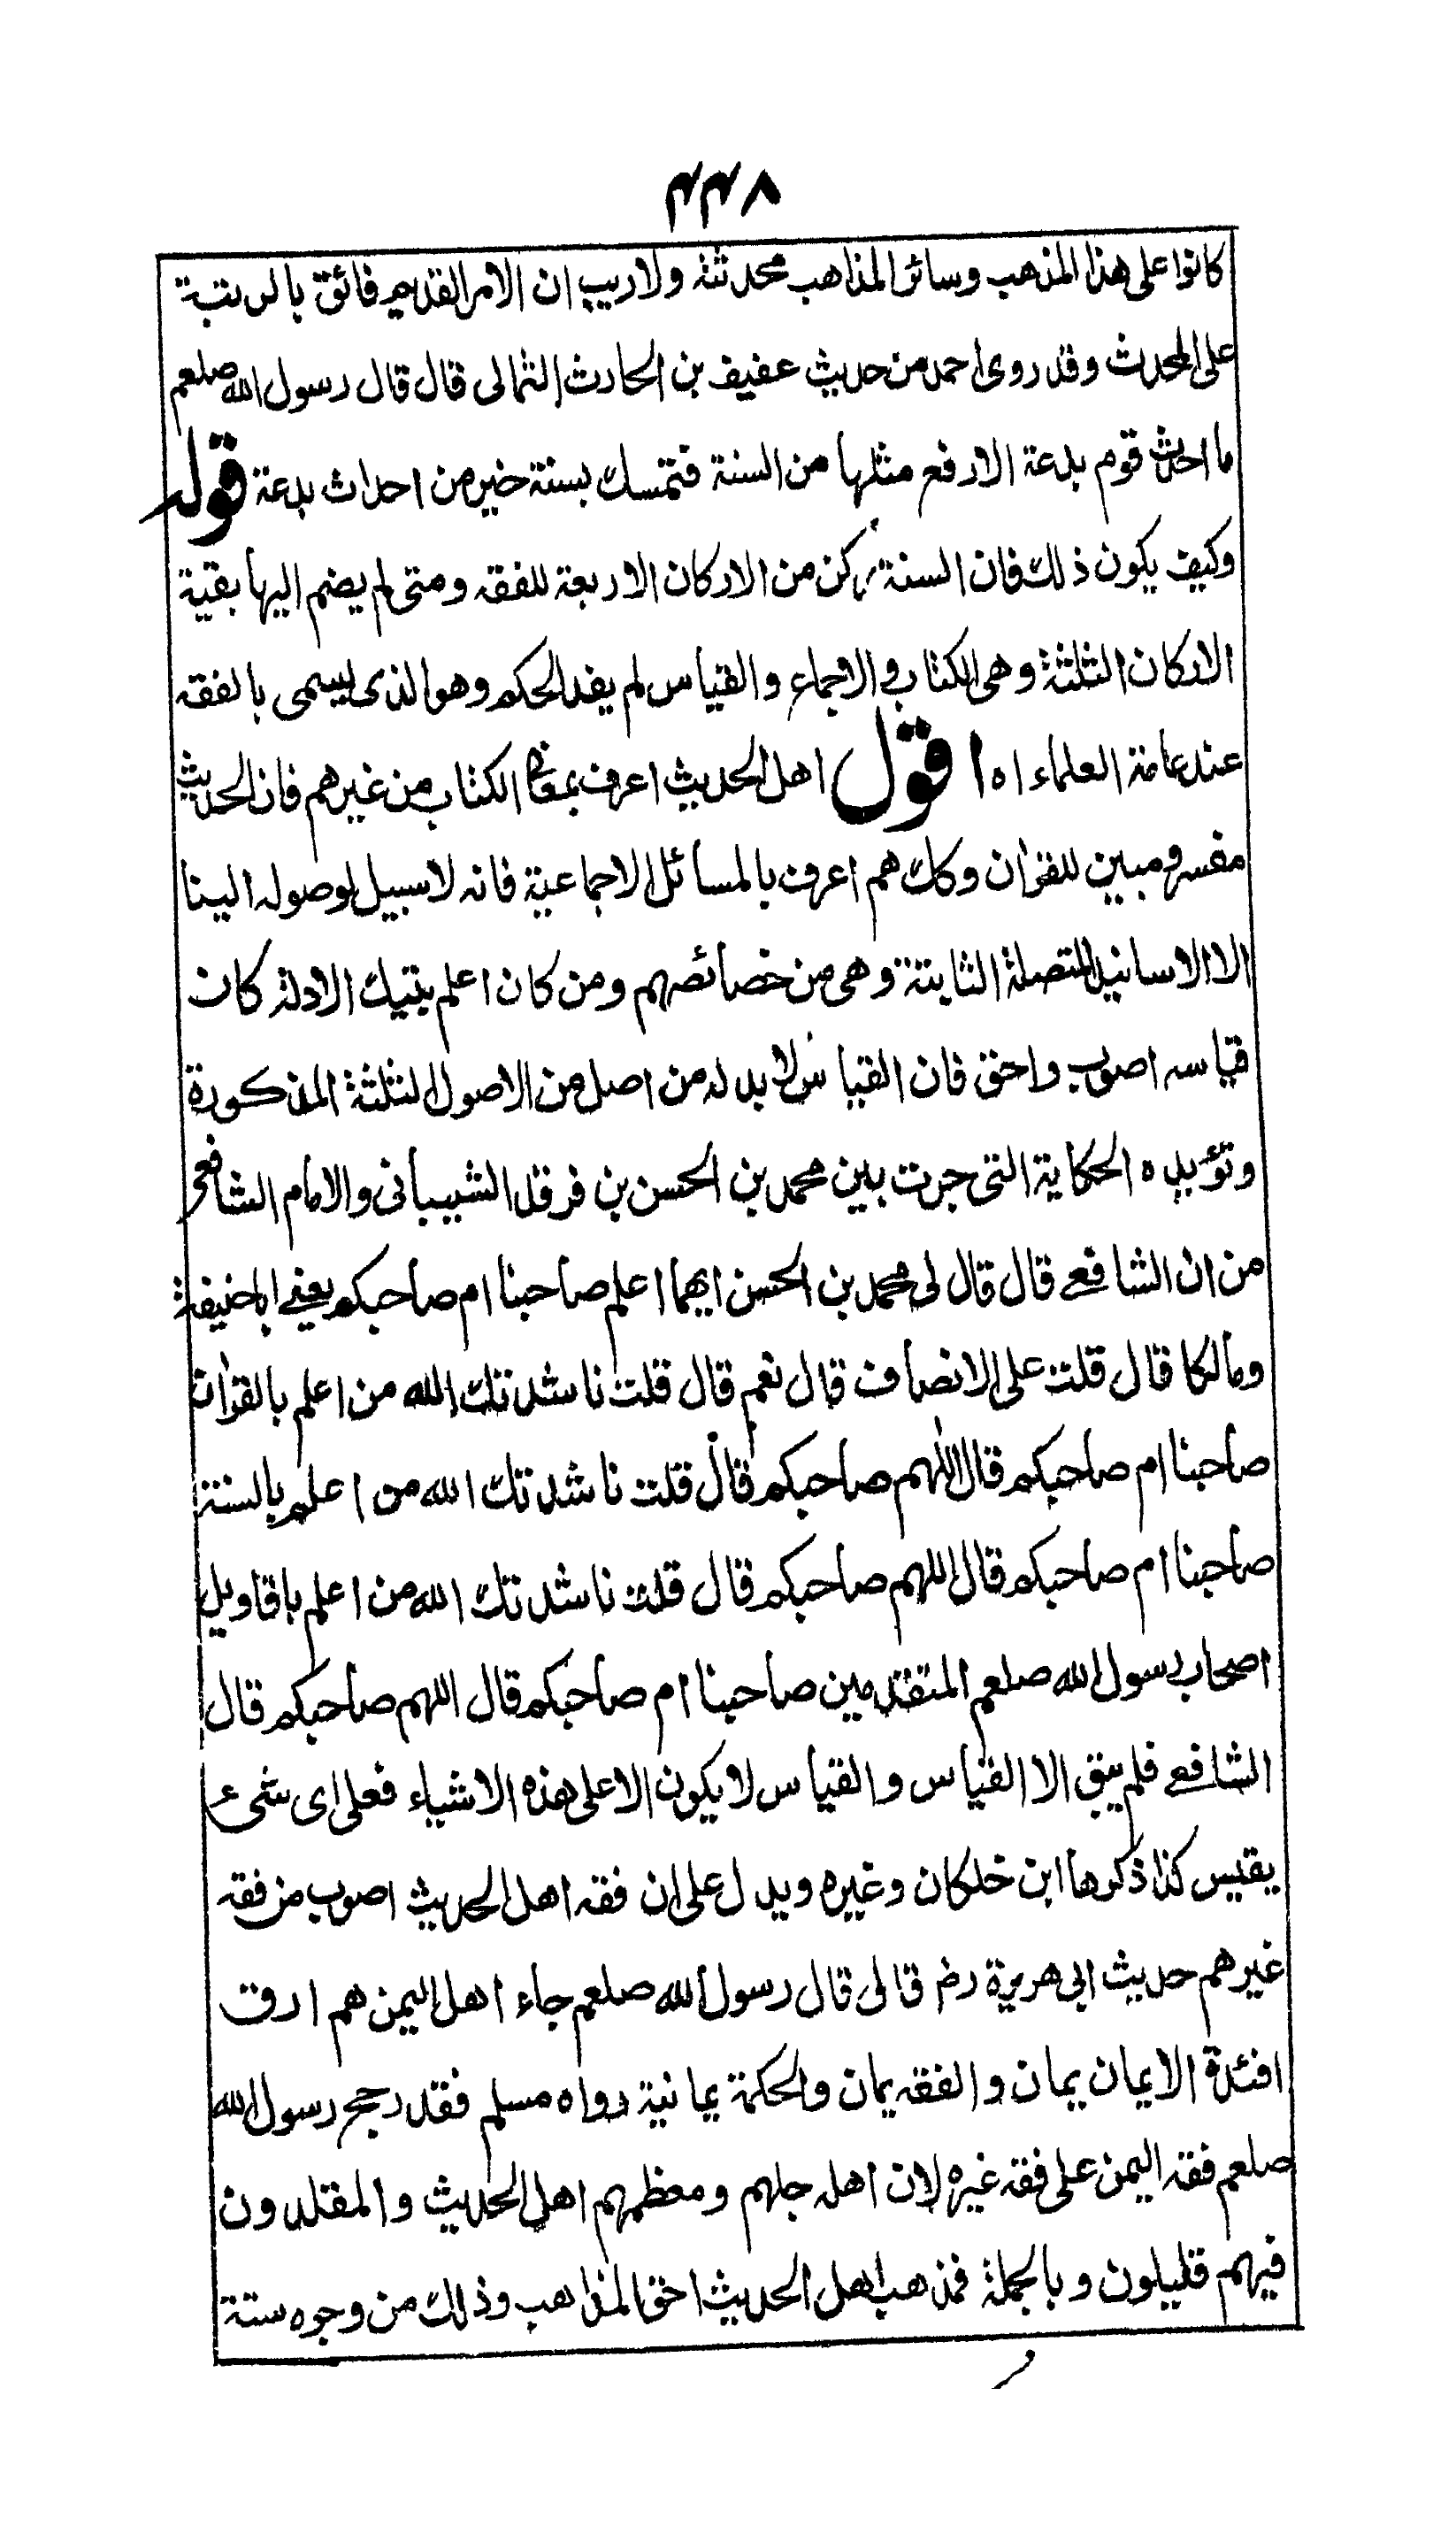 ۴۴۸
كانوا على هذا المذهب وسائر المذاهب محدثة ولا ريب ان الامر القديم فائق بالرتبة
على المحدث وقد روى احمد من حديث عفيف بن الحارث الثمالى قال قال رسول الله صلعم
ما احدث قوم بدعة الا رفع مثلها من السنة فتمسك بسنة خير من احداث بدعة قوله
وكيف يكون ذلك فان السنة ركن من الاركان الاربعة للفقه ومتى لم يضم اليها بقية
الاركان الثلثة وهى الكتاب والاجماع والقياس لم يفد الحكم وهو الذى يسمى بالفقه
عند عامة العلماء اه اقول اهل الحديث اعرف بمعانى الكتاب من غيرهم فان الحديث
مفسر ومبين للقرآن وكك هم اعرف بالمسائل الاجماعية فانه لا سبيل لوصوله الينا
الا الاسانيد المتصلة الثابتة وهى من خصائصهم ومن كان اعلم بتيك الادلة كان
قياسه اصوب واحق فان القياس لا بد له من اصل من الاصول الثلثة المذكورة
وتؤيده الحكاية التى جرت بين محمد بن الحسن بن فرقد الشيبانى والامام الشافعى
من ان الشافعے قال قال لى محمد بن الحسن ايهما اعلم صاحبنا ام صاحبكم يعنے اباحنيفة
ومالكا قال قلت على الانصاف قال نعم قال قلت ناشدتك الله من اعلم بالقرآن
صاحبنا ام صاحبكم قال اللهم صاحبكم قال قلت ناشدتك الله من اعلم بالسنة
صاحبنا ام صاحبكم قال اللهم صاحبكم قال قلت ناشدتك الله من اعلم باقاويل
اصحاب رسول الله صلعم المتقدمين صاحبنا ام صاحبكم قال اللهم صاحبكم قال
الشافعے فلم يبق الا القياس والقياس لا يكون الا على هذه الاشياء فعلى اى شىء
يقيس كذا ذكرها ابن خلكان وغيره ويدل على ان فقه اهل الحديث اصوب من فقه
غيرهم حديث ابى هريرة رض قال قال رسول الله صلعم جاء اهل اليمن هم ارق
افئدة الايمان يمان والفقه يمان والحكمة يمانية رواه مسلم فقد رجح رسول الله
صلعم فقه اليمن على فقه غيره لان اهله جلهم ومعظمهم اهل الحديث والمقلدون
فيهم قليلون وبالجملة فمذهب اهل الحديث احق المذاهب وذلك من وجوه ستة